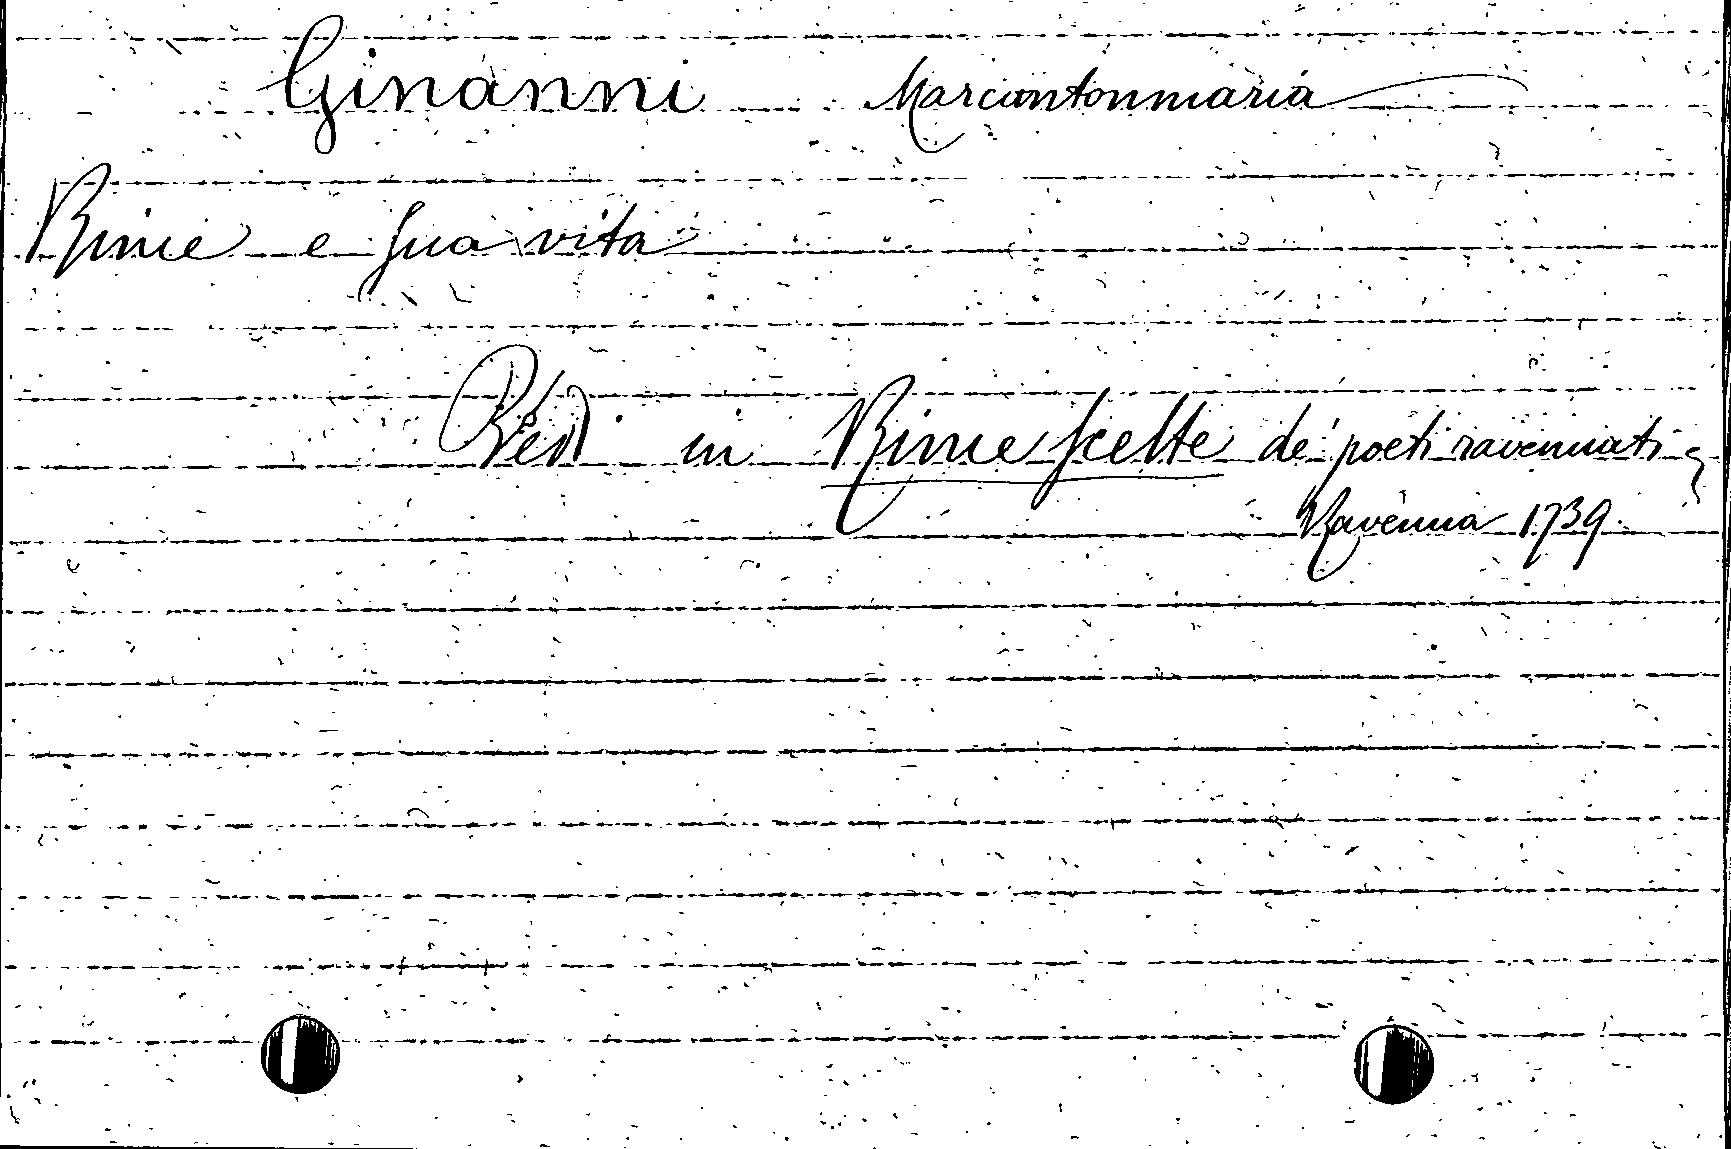 Ginanni Marcantonmaria
Rime e sua vita
Vedi in Rime scelte de' poeti ravennati
Ravenna 1739.